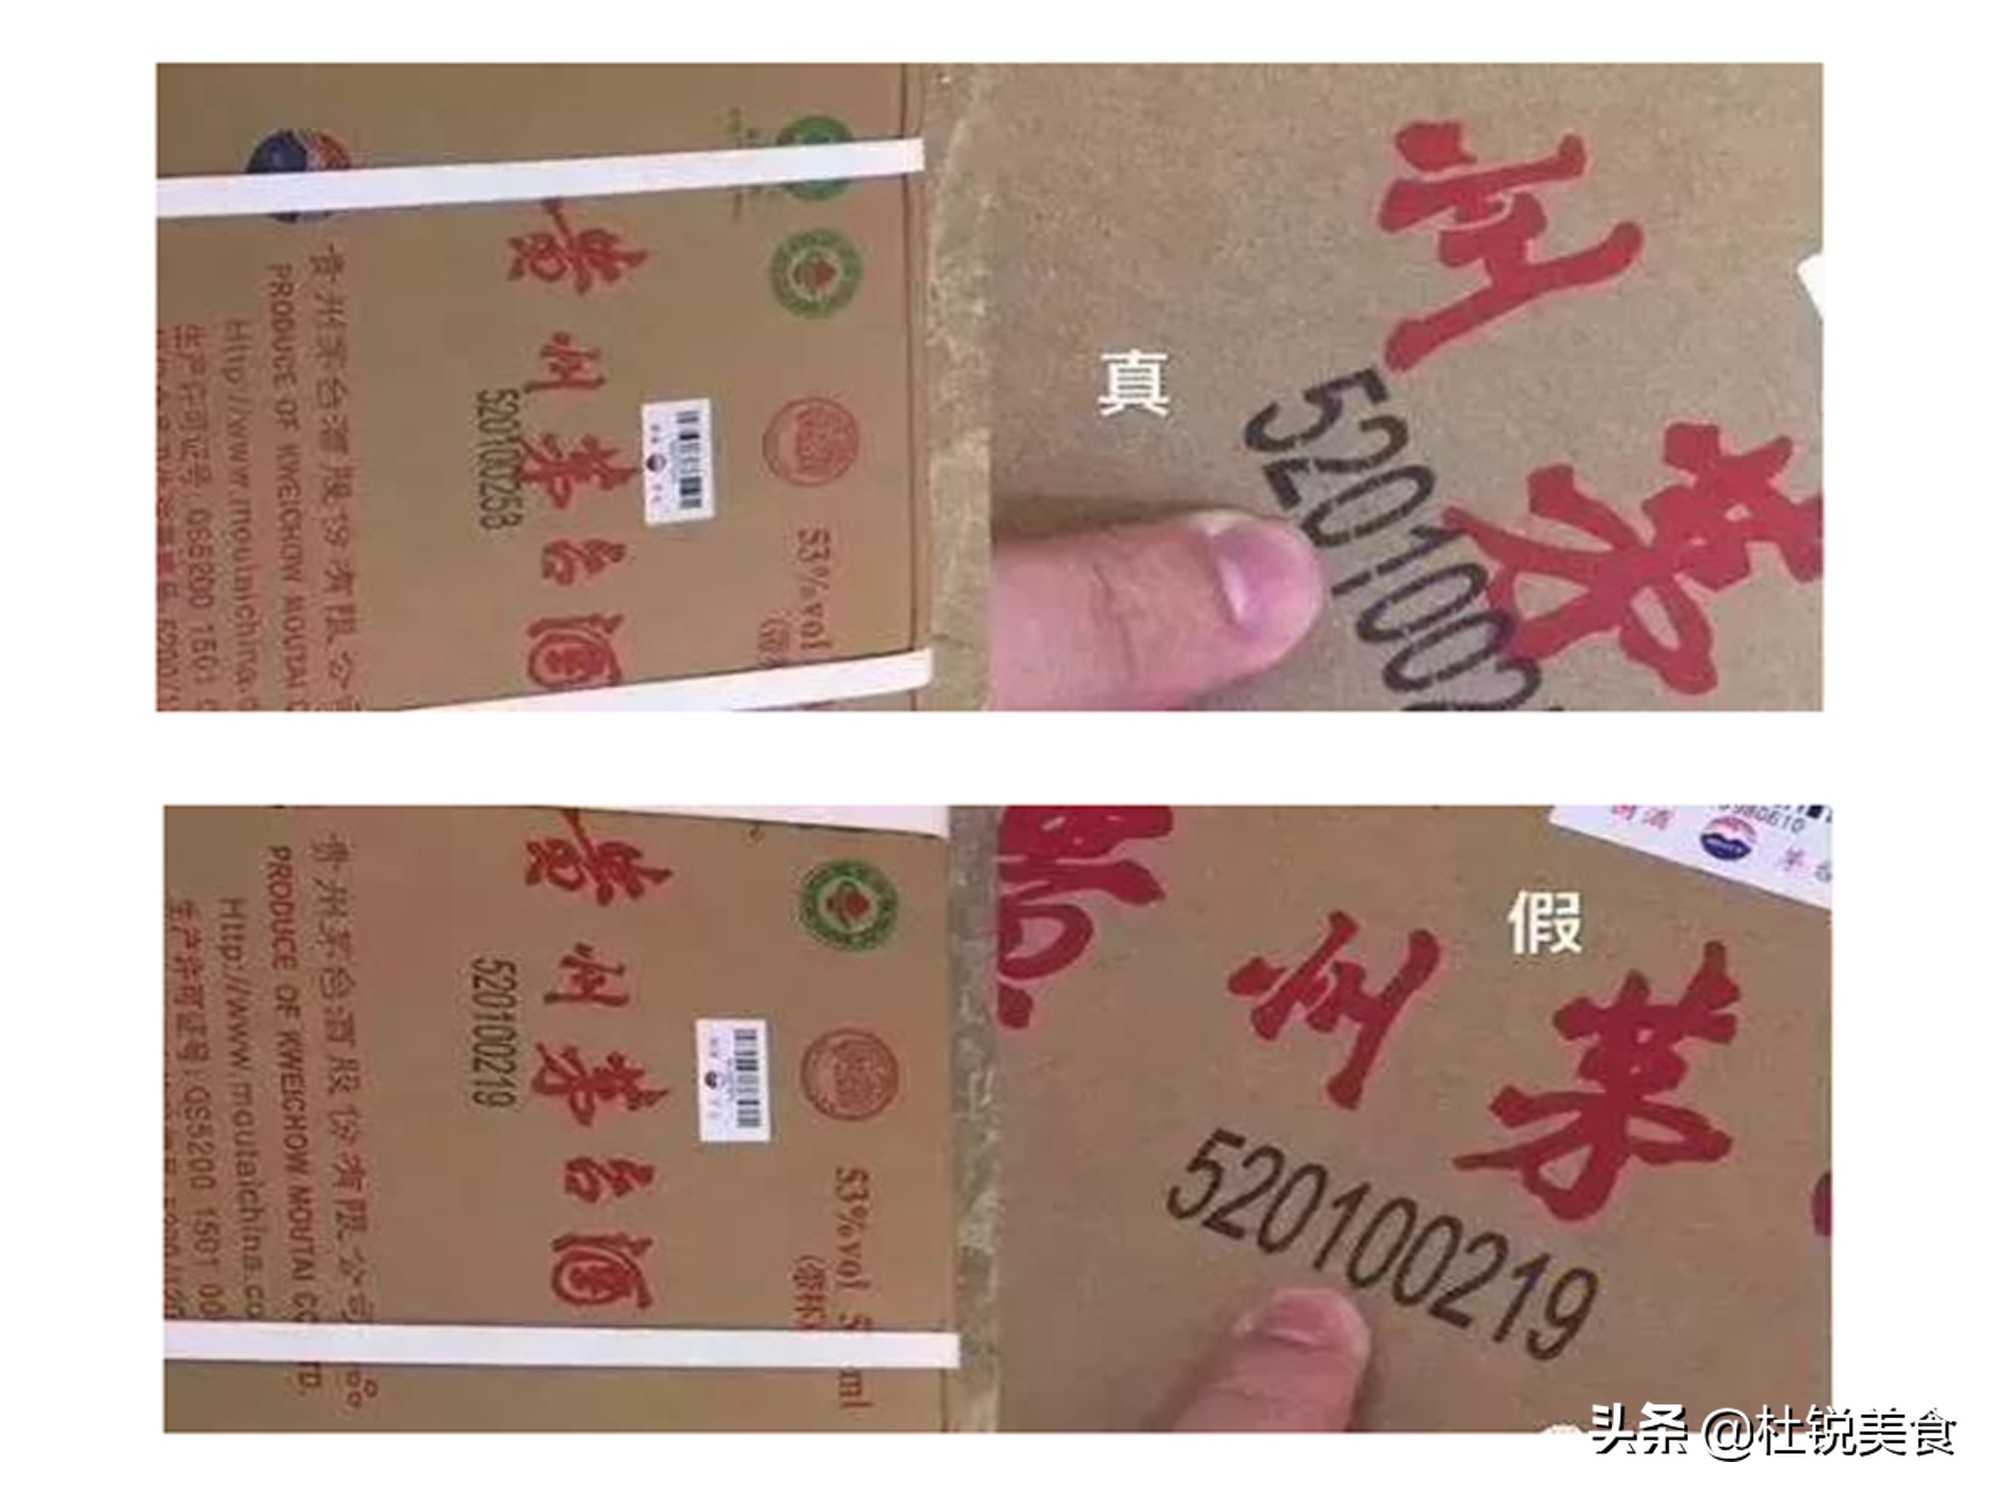 贵州茅台酒
520100258
53%vol
贵州茅台酒股份有限公司
PRODUCE OF KWEICHOW MOUTAI
Http://www.moutaichina.
生产许可证号:QS5200 1501
真
州
茅
5201002
贵州茅台酒
520100219
53%vol
ml
贵州茅台酒股份有限公司
PRODUCE OF KWEICHOW MOUTAI CO
TD.
Http://www.moutaichina.co
生产许可证号:QS5200 1501 00
假
贵州茅
520100219
头条 @杜锐美食